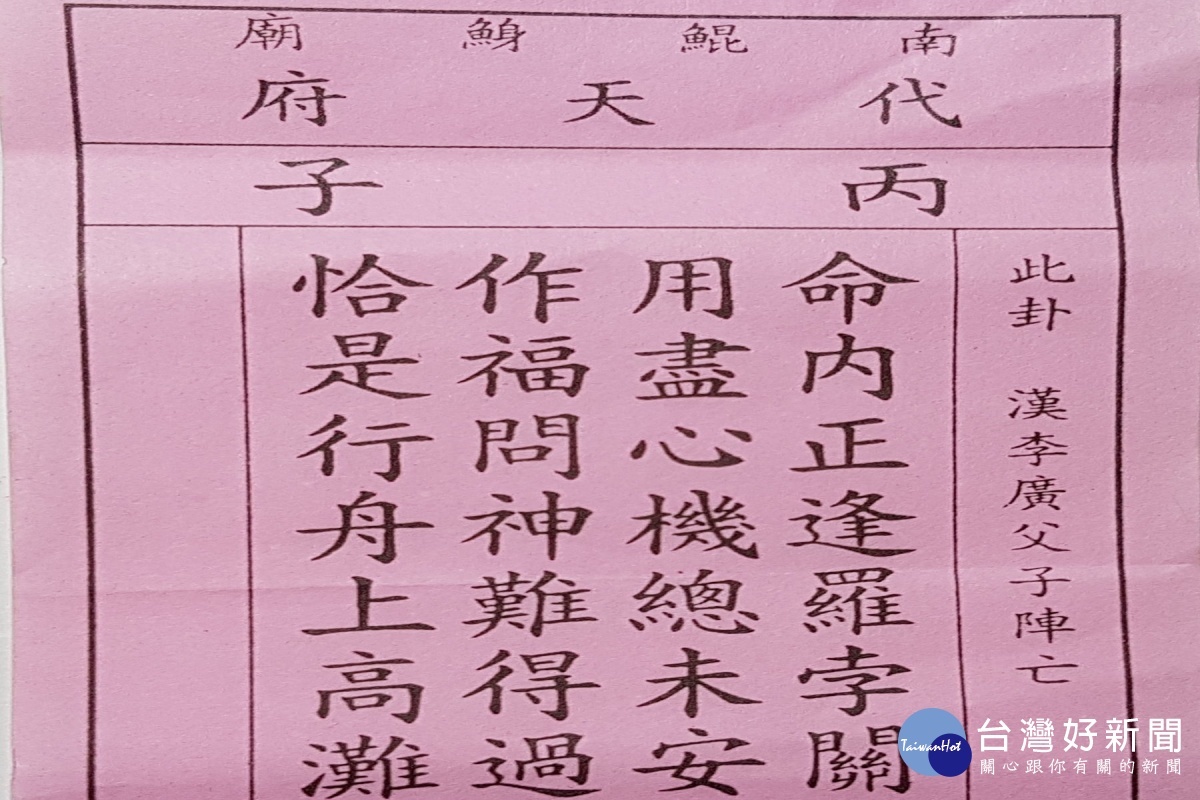 南鯤鯓廟
代天府
丙子
此卦 漢李廣父子陣亡
命内正逢羅孛關
用盡心機總未安
作福問神難得過
恰是行舟上高灘
TaiwanHot
台灣好新聞
關心跟你有關的新聞